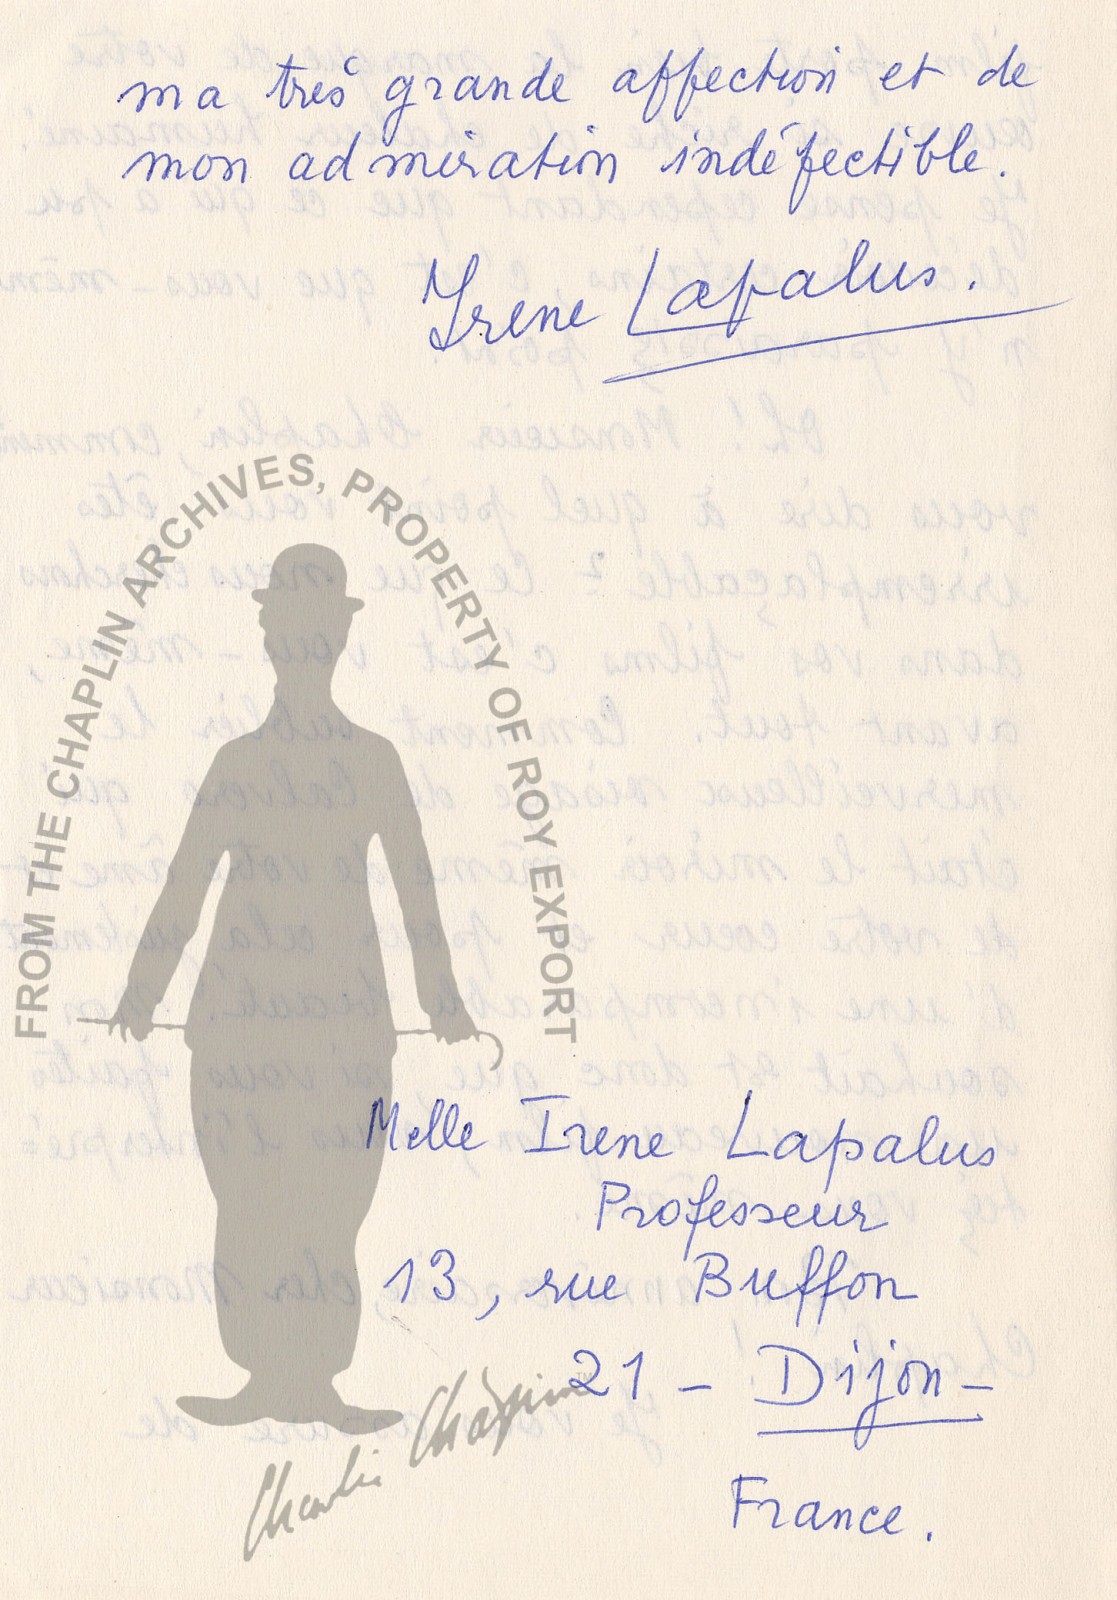 ma très grande affection et de
mon admiration indéfectible.
Irene Lapalus.
FROM THE CHAPLIN ARCHIVES, PROPERTY OF ROY EXPORT
Melle Irene Lapalus
Professeur
13, rue Buffon
21 - Dijon -
France.
Charlie Chaplin